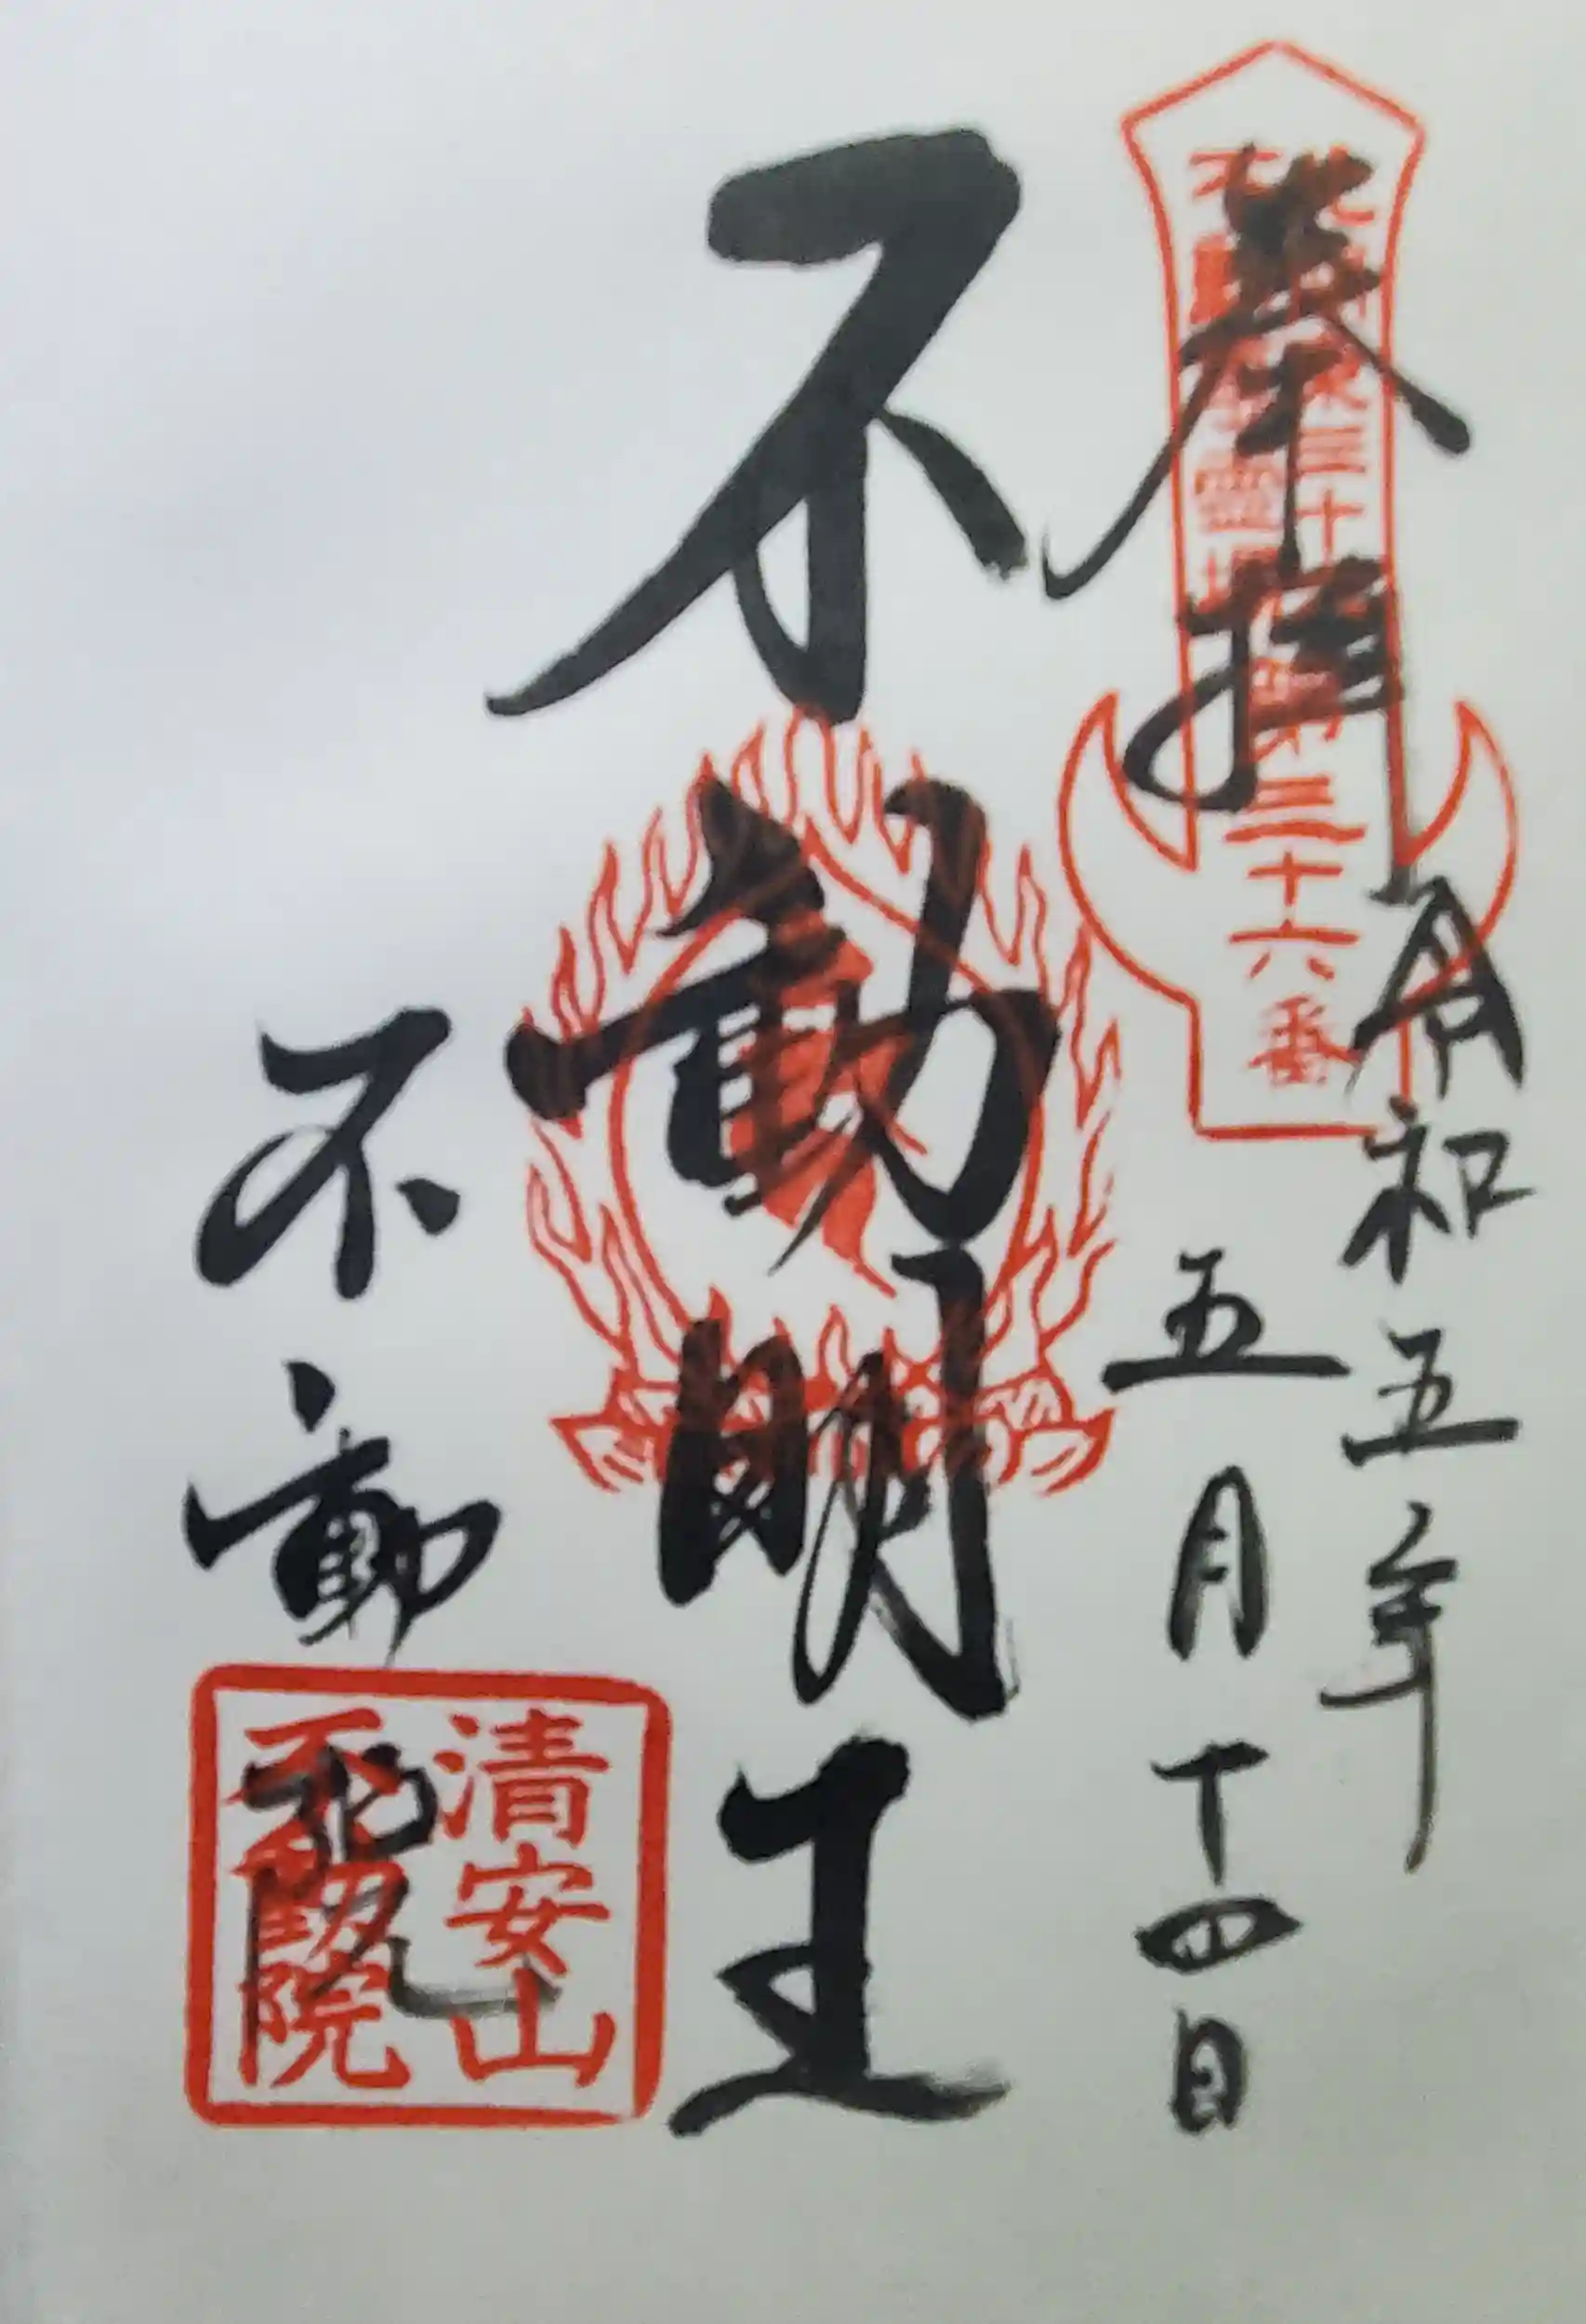 奉拝
令和五年
五月十四日
三十
第三十六番
不動明王
不動院
清安山
不動院